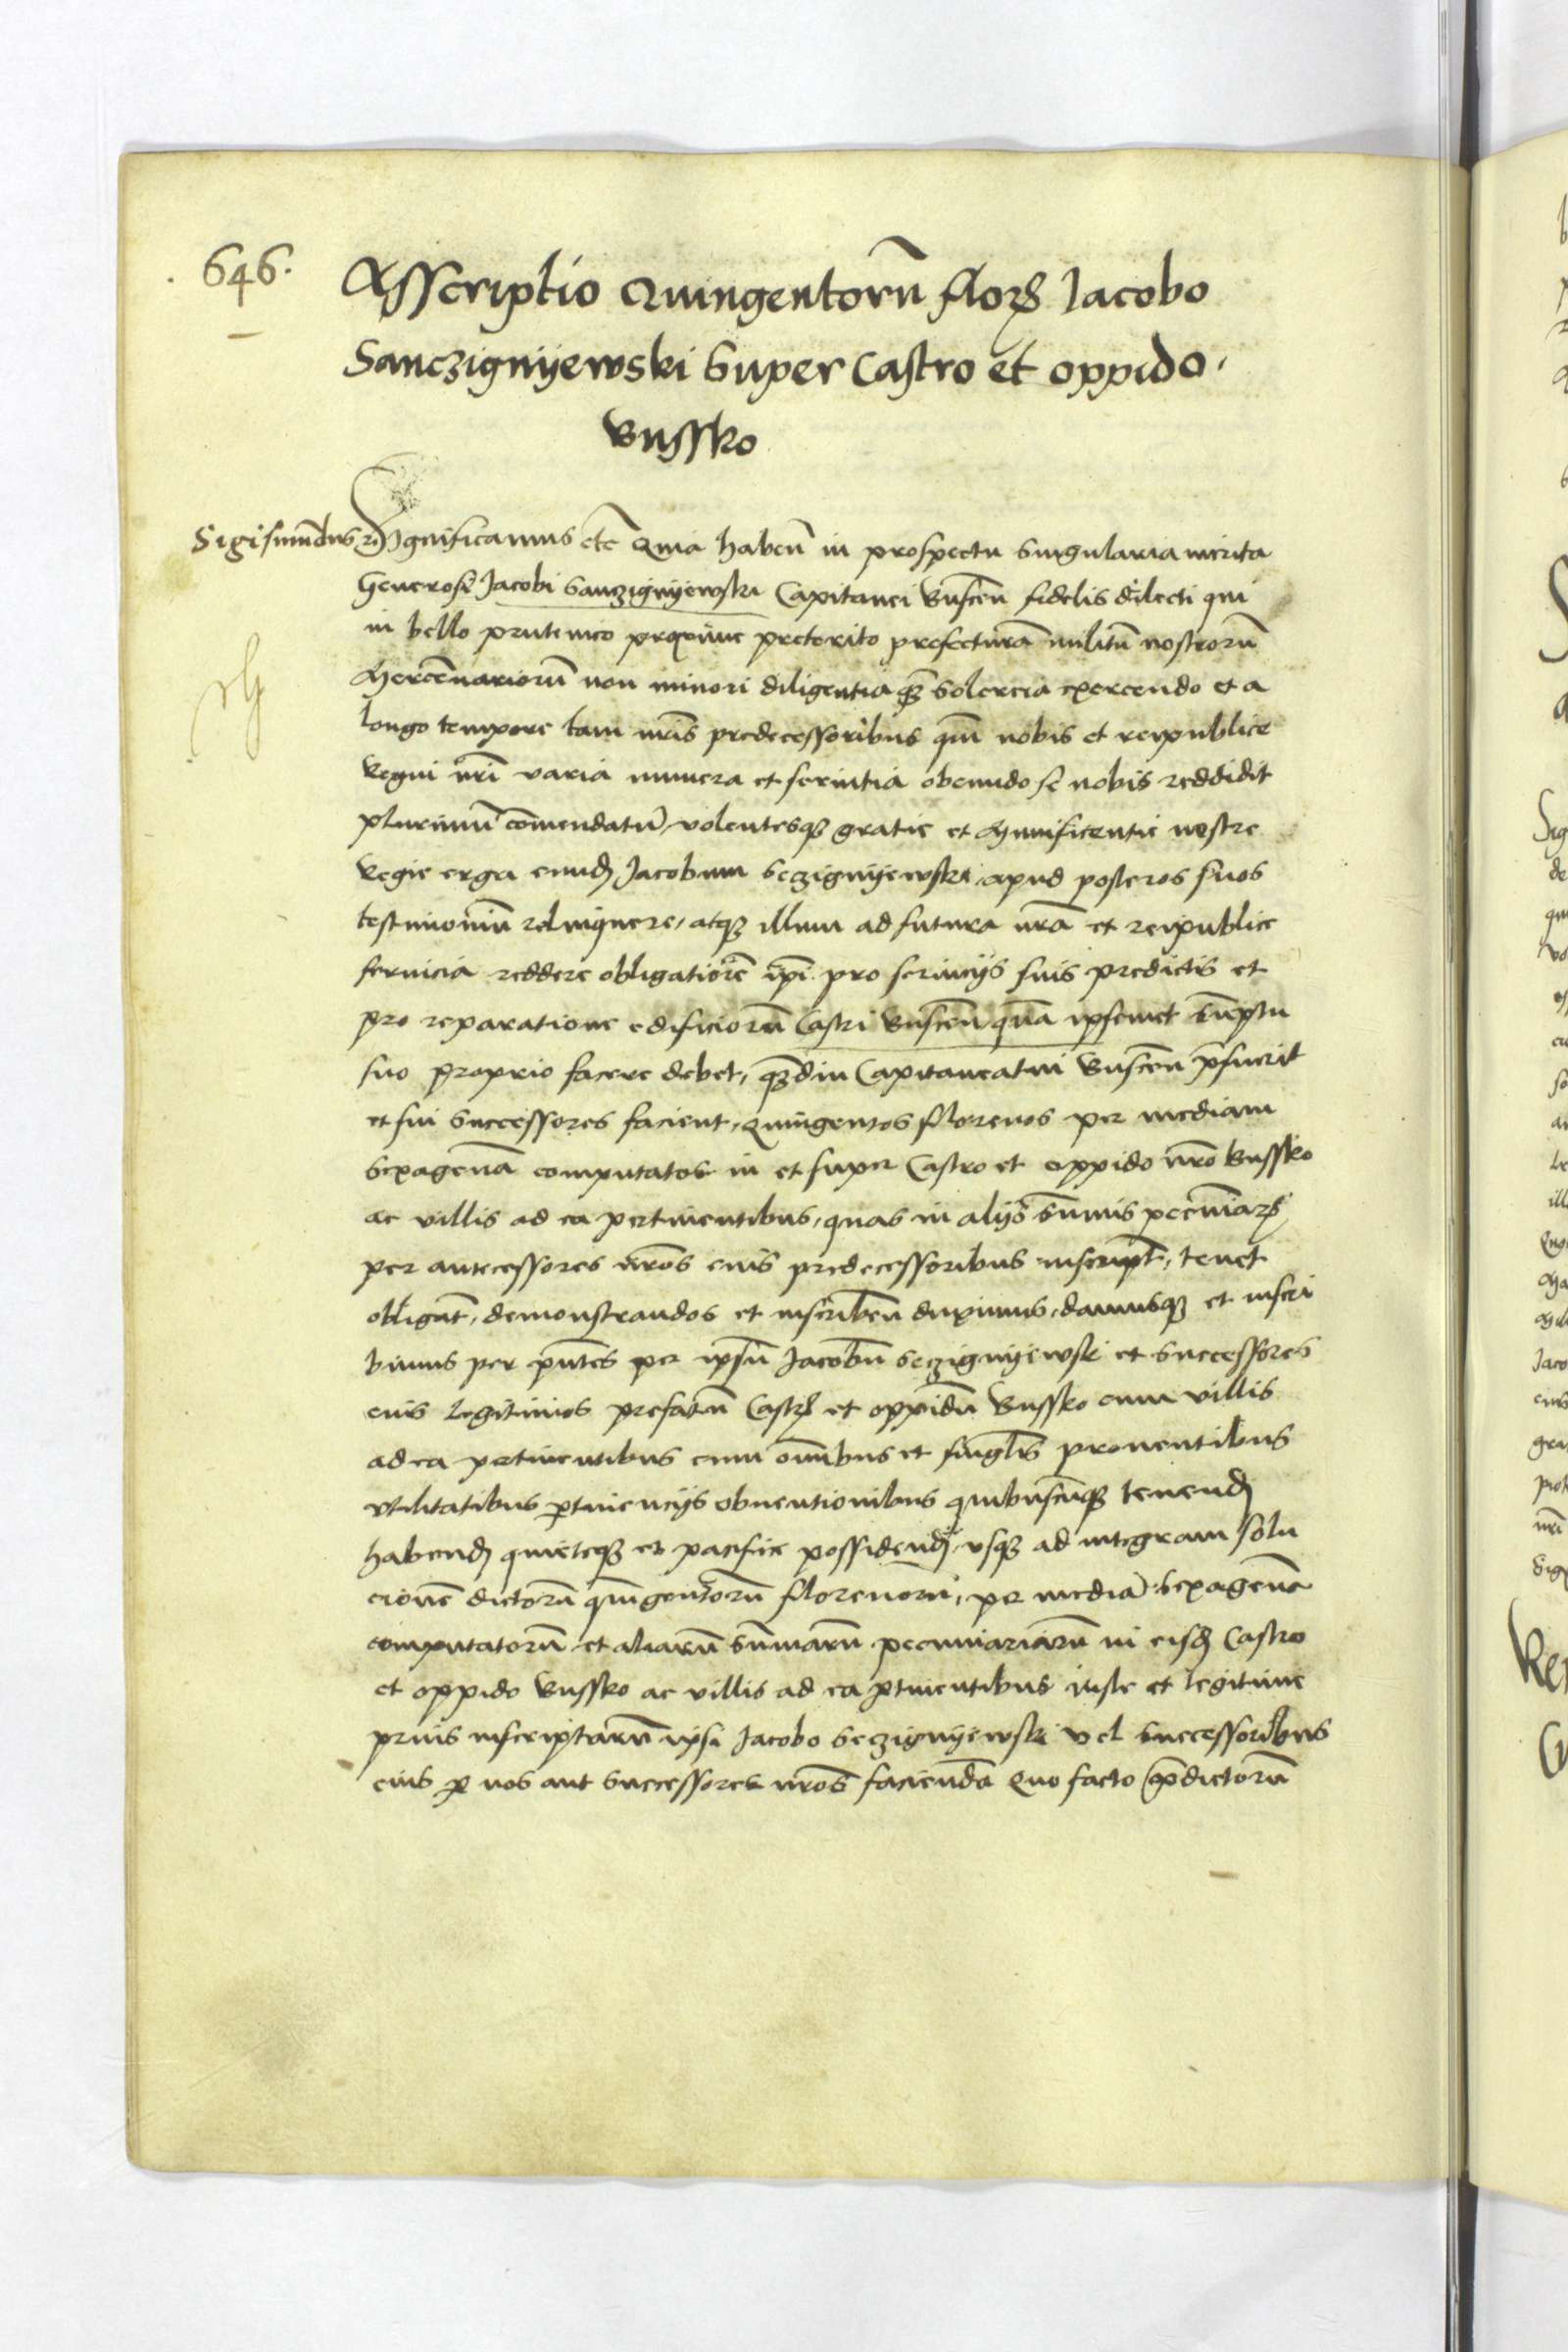 646.
Asscriptio Quingentorū floꝝ Jacobo
Sanczignijewski Super Castro et oppido.
Bussko
Sigismūdus ꝛc̄ Significamus etc̄ Quia habeñ in prospectu singularia merita
Generosi Jacobi Sanczignijewski Capitanei Busceñ fidelis dilecti qui
in bello prutenico proxime preterito prefecturā militū nostrorū
Mercēnariorū non minori diligentia qꝫ̄ solercia exercendo et a
longo tempore tam nr̄is predecessoribus qm̄ nobis et reipublice
Regni nr̄i varia munera et seruitia obeundo se nobis reddidit
plurimū cōmendatū, volentesqꝫ gratie et Munificentie nostre
Regie erga eundꝫ Jacobum Seczignijewski apud posteros suos
testimoniū relinquere, atqꝫ illum ad futura nr̄a et reipublice
seruicia reddere obligatiorē ip̄i pro seruicijs suis predictis et
pro reparatione edificiorū Castri Busceñ quā ipsemet sūmptu
suo proprio facere debet, qꝫ̄diu Capitaneatui Busceñ p̄fuerit
et sui successores facient, Quingentos florenos per mediam
sexagenā computatos in et super Castro et oppido nr̄o Bussko
ac villis ad ea pertinentibus, quas in alijs sūmis pecūiaꝝ
per antecessores nr̄os eius predecessoribus inscript̄, tenet
obligat̄, demonstrandos et inscribeñ duximus, damusqꝫ et inscri
bimus per p̄ntes per ipsū Jacobū Seczignijewski et successores
eius legitimos prefatū Castꝝ et oppidū Bussko cum villis
ad ea pertinentibus cum om̄ibus et singl̄is prouentibus
vtilitatibus ꝑtinencijs obuentionibus quibuscūqꝫ tenendꝫ
habendꝫ quieteqꝫ et pacifice possidendꝫ, vsqꝫ ad integram solu
cionē dictorū quīgentorū florenorū, per mediā sexagenā
computatorū et aliarū sūmarū pecuniariarū in eisdꝫ Castro
et oppido Bussko ac villis ad ea ꝑtinentibus iuste et legitime
prius inscriptarū ipsi Jacobo Seczignijewski vel successoribus
eius ꝑ nos aut successores nr̄os faciendā Quo facto p̄dictorū